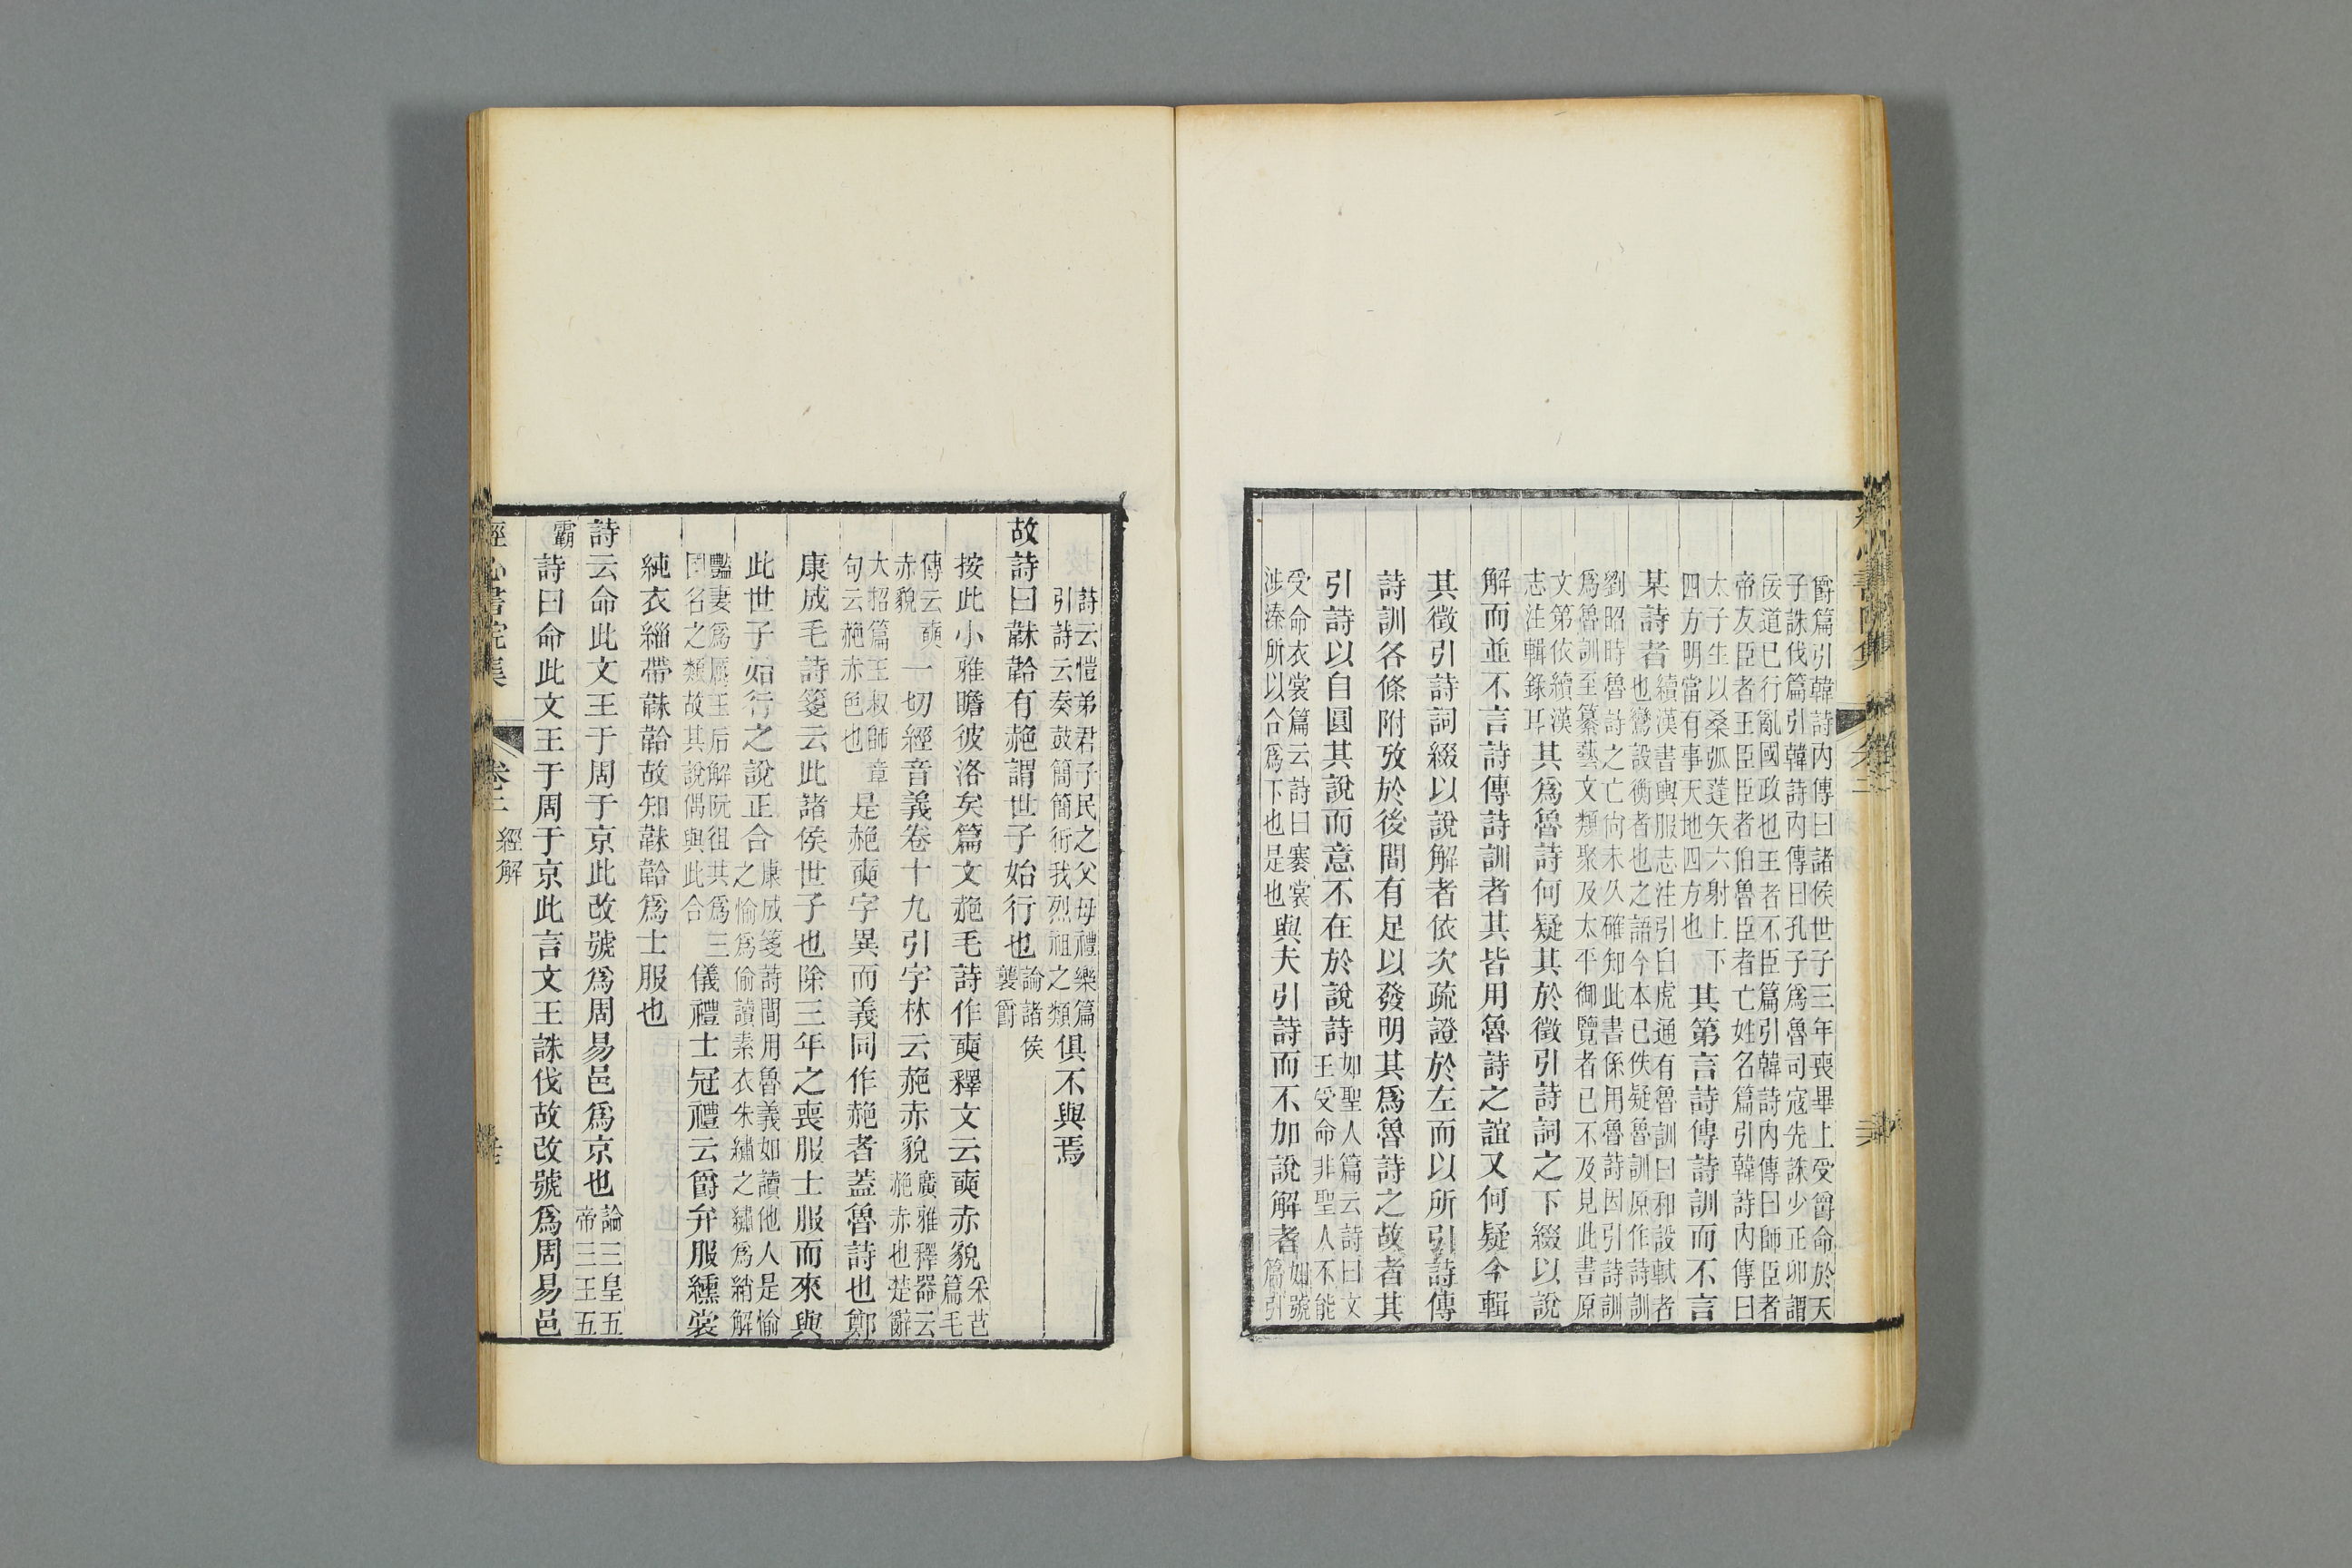 爵篇引韓詩內傳曰諸侯世子三年喪畢上受爵命於天
子誅伐篇引韓詩內傳曰孔子爲魯司寇先誅少正卯謂
佞道已行亂國政也王者不臣篇引韓詩內傳曰師臣者
帝友臣者王臣臣者伯魯臣者亡姓名篇引韓詩內傳曰
太子生以桑弧蓬矢六射上下
四方明當有事天地四方也
其第言詩傳詩訓而不言
某詩者
續漢書輿服志注引白虎通有魯訓曰和設軾者
也鸞設衡者也之語今本已佚疑魯訓原作詩訓
劉昭時魯詩之亡尙未久確知此書係用魯詩因引詩訓
爲魯訓至纂藝文類聚及太平御覽者已不及見此書原
文第依續漢
志注輯錄耳
其爲魯詩何疑其於徵引詩詞之下綴以說
解而並不言詩傳詩訓者其皆用魯詩之誼又何疑今輯
其徵引詩詞綴以說解者依次疏證於左而以所引詩傳
詩訓各條附攷於後間有足以發明其爲魯詩之故者其
引詩以自圓其說而意不在於說詩
如聖人篇云詩曰文
王受命非聖人不能
受命衣裳篇云詩曰褰裳
涉溱所以合爲下也是也
與夫引詩而不加說解者
如號
篇引
詩云愷弟君子民之父母禮樂篇
引詩云奏鼓簡簡衎我烈祖之類
俱不與焉
故詩曰韎韐有赩謂世子始行也
論諸侯
襲爵
按此小雅瞻彼洛矣篇文赩毛詩作奭釋文云奭赤貌
采芑
篇毛
傳云奭
赤貌
一切經音義卷十九引字林云赩赤貌
廣雅釋器云
赩赤也楚辭
大招篇王叔師章
句云赩赤色也
是赩奭字異而義同作赩者蓋魯詩也鄭
康成毛詩箋云此諸侯世子也除三年之喪服士服而來與
此世子始行之說正合
康成箋詩間用魯義如讀他人是愉
之愉爲偷讀素衣朱繡之繡爲綃解
豔妻爲厲王后解阮徂共爲三
國名之類故其說偶與此合
儀禮士冠禮云爵弁服纁裳
純衣緇帶韎韐故知韎韐爲士服也
詩云命此文王于周于京此改號爲周易邑爲京也
論三皇五
帝三王五
霸
詩曰命此文王于周于京此言文王誅伐故改號爲周易邑
經心書院集
卷二
經解